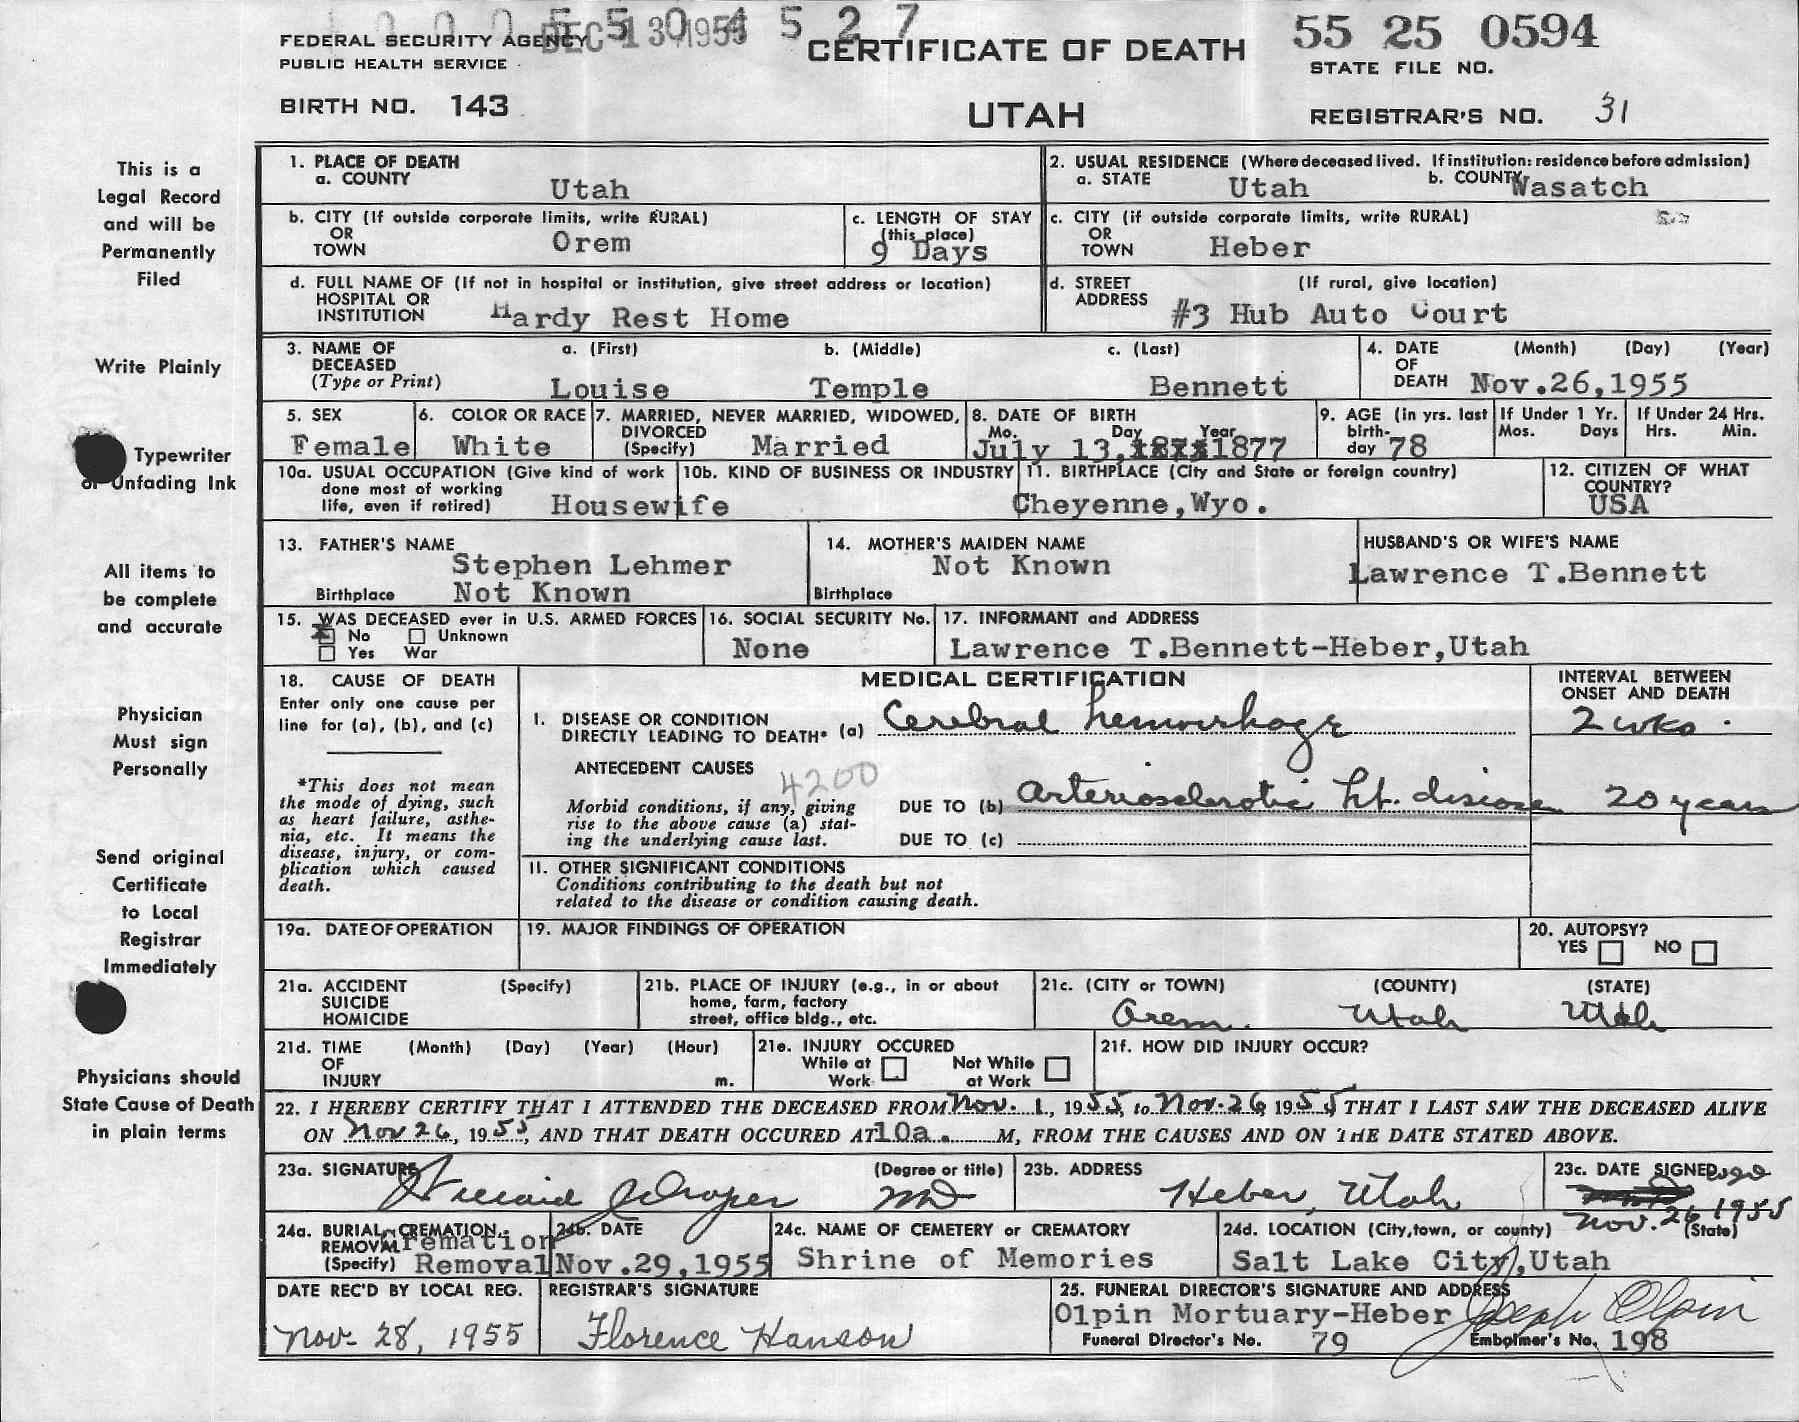 1 0 0 0 5 5 0 4 5 2 7
DEC 13 1955
FEDERAL SECURITY AGENCY
PUBLIC HEALTH SERVICE
CERTIFICATE OF DEATH
55 25 0594
STATE FILE NO.
BIRTH NO. 143
UTAH
REGISTRAR'S NO. 31
This is a
Legal Record
and will be
Permanently
Filed
1. PLACE OF DEATH
a. COUNTY Utah
2. USUAL RESIDENCE (Where deceased lived. If institution: residence before admission)
a. STATE Utah b. COUNTY Wasatch
b. CITY (If outside corporate limits, write RURAL)
OR
TOWN Orem
c. LENGTH OF STAY
(this place)
9 Days
c. CITY (if outside corporate limits, write RURAL)
OR
TOWN Heber
d. FULL NAME OF (If not in hospital or institution, give street address or location)
HOSPITAL OR
INSTITUTION Hardy Rest Home
d. STREET (If rural, give location)
ADDRESS #3 Hub Auto Court
Write Plainly
3. NAME OF a. (First) b. (Middle) c. (Last)
DECEASED
(Type or Print) Louise Temple Bennett
4. DATE (Month) (Day) (Year)
OF
DEATH Nov.26,1955
Typewriter
or Unfading Ink
5. SEX
Female
6. COLOR OR RACE
White
7. MARRIED, NEVER MARRIED, WIDOWED,
DIVORCED
(Specify) Married
8. DATE OF BIRTH
Mo. Day Year
July 13, 1877
9. AGE (in yrs. last
birth-
day 78
If Under 1 Yr.
Mos. Days
If Under 24 Hrs.
Hrs. Min.
10a. USUAL OCCUPATION (Give kind of work
done most of working
life, even if retired) Housewife
10b. KIND OF BUSINESS OR INDUSTRY
11. BIRTHPLACE (City and State or foreign country)
Cheyenne,Wyo.
12. CITIZEN OF WHAT
COUNTRY?
USA
All items to
be complete
and accurate
13. FATHER'S NAME
Stephen Lehmer
Birthplace Not Known
14. MOTHER'S MAIDEN NAME
Not Known
Birthplace
HUSBAND'S OR WIFE'S NAME
Lawrence T.Bennett
15. WAS DECEASED ever in U.S. ARMED FORCES
No Unknown
Yes War
16. SOCIAL SECURITY No.
None
17. INFORMANT and ADDRESS
Lawrence T.Bennett-Heber,Utah
Physician
Must sign
Personally
18. CAUSE OF DEATH
Enter only one cause per
line for (a), (b), and (c)
*This does not mean
the mode of dying, such
as heart failure, asthe-
nia, etc. It means the
disease, injury, or com-
plication which caused
death.
MEDICAL CERTIFICATION
INTERVAL BETWEEN
ONSET AND DEATH
I. DISEASE OR CONDITION
DIRECTLY LEADING TO DEATH* (a) Cerebral hemorrhage 2 wks.
ANTECEDENT CAUSES
4200
Morbid conditions, if any, giving
rise to the above cause (a) stat-
ing the underlying cause last.
DUE TO (b) Arteriosclerotic ht. disease 20 years
DUE TO (c)
II. OTHER SIGNIFICANT CONDITIONS
Conditions contributing to the death but not
related to the disease or condition causing death.
Send original
Certificate
to Local
Registrar
Immediately
19a. DATE OF OPERATION
19. MAJOR FINDINGS OF OPERATION
20. AUTOPSY?
YES NO
21a. ACCIDENT (Specify)
SUICIDE
HOMICIDE
21b. PLACE OF INJURY (e.g., in or about
home, farm, factory
street, office bldg., etc.
21c. (CITY or TOWN) (COUNTY) (STATE)
Orem Utah Utah
Physicians should
State Cause of Death
in plain terms
21d. TIME (Month) (Day) (Year) (Hour)
OF
INJURY m.
21e. INJURY OCCURED
While at Not While
Work at Work
21f. HOW DID INJURY OCCUR?
22. I HEREBY CERTIFY THAT I ATTENDED THE DECEASED FROM Nov. 1, 1955, to Nov. 26, 1955, THAT I LAST SAW THE DECEASED ALIVE
ON Nov 26, 1955, AND THAT DEATH OCCURED AT 10a. M, FROM THE CAUSES AND ON THE DATE STATED ABOVE.
23a. SIGNATURE (Degree or title)
MD
23b. ADDRESS
Heber, Utah
23c. DATE SIGNED
Nov. 26 1955
24a. BURIAL, CREMATION,
REMOVAL Cremation
(Specify) Removal
24b. DATE
Nov.29,1955
24c. NAME OF CEMETERY or CREMATORY
Shrine of Memories
24d. LOCATION (City,town, or county) (State)
Salt Lake City,Utah
DATE REC'D BY LOCAL REG.
Nov. 28, 1955
REGISTRAR'S SIGNATURE
Florence Hanson
25. FUNERAL DIRECTOR'S SIGNATURE AND ADDRESS
Olpin Mortuary-Heber Joseph Olpin
Funeral Director's No. 79 Embalmer's No. 198